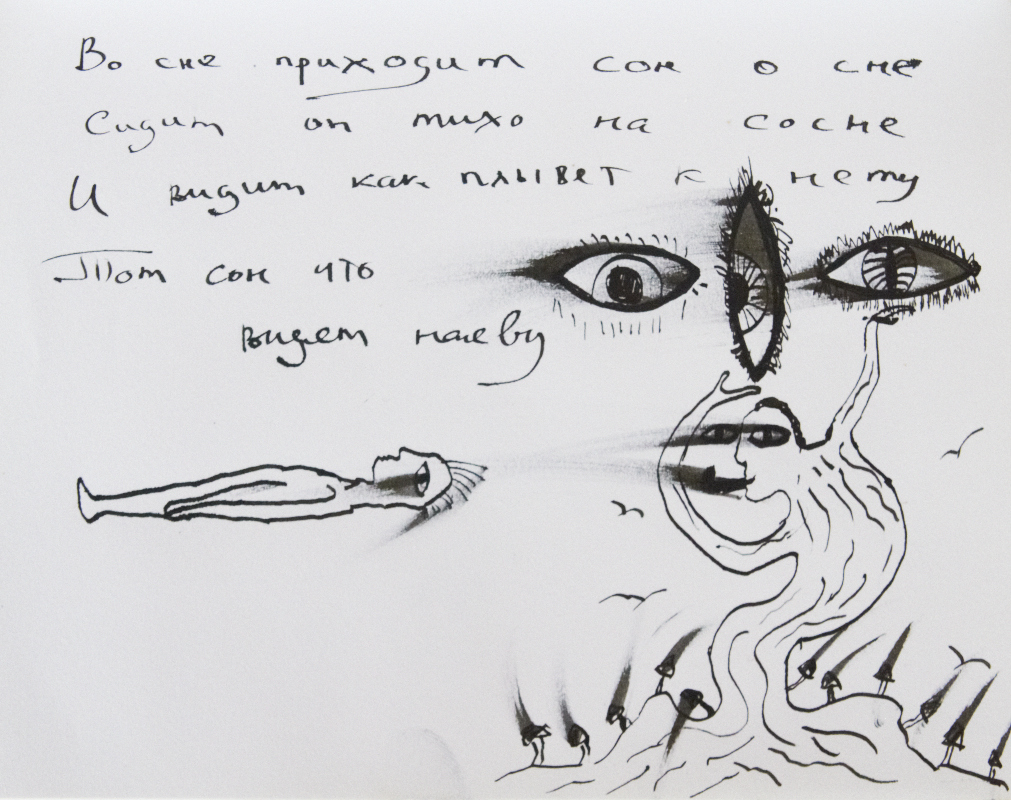 Во сне приходит сон о сне
Сидит он тихо на сосне
И видит как плывет к нему
Тот сон что
видет наеву